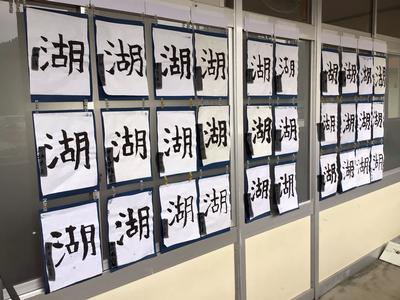 湖 湖 湖 湖 湖 湖 湖 湖 湖 湖
湖 湖 湖 湖 湖 湖 湖 湖 湖 湖
湖 湖 湖 湖 湖 湖 湖 湖 湖 湖